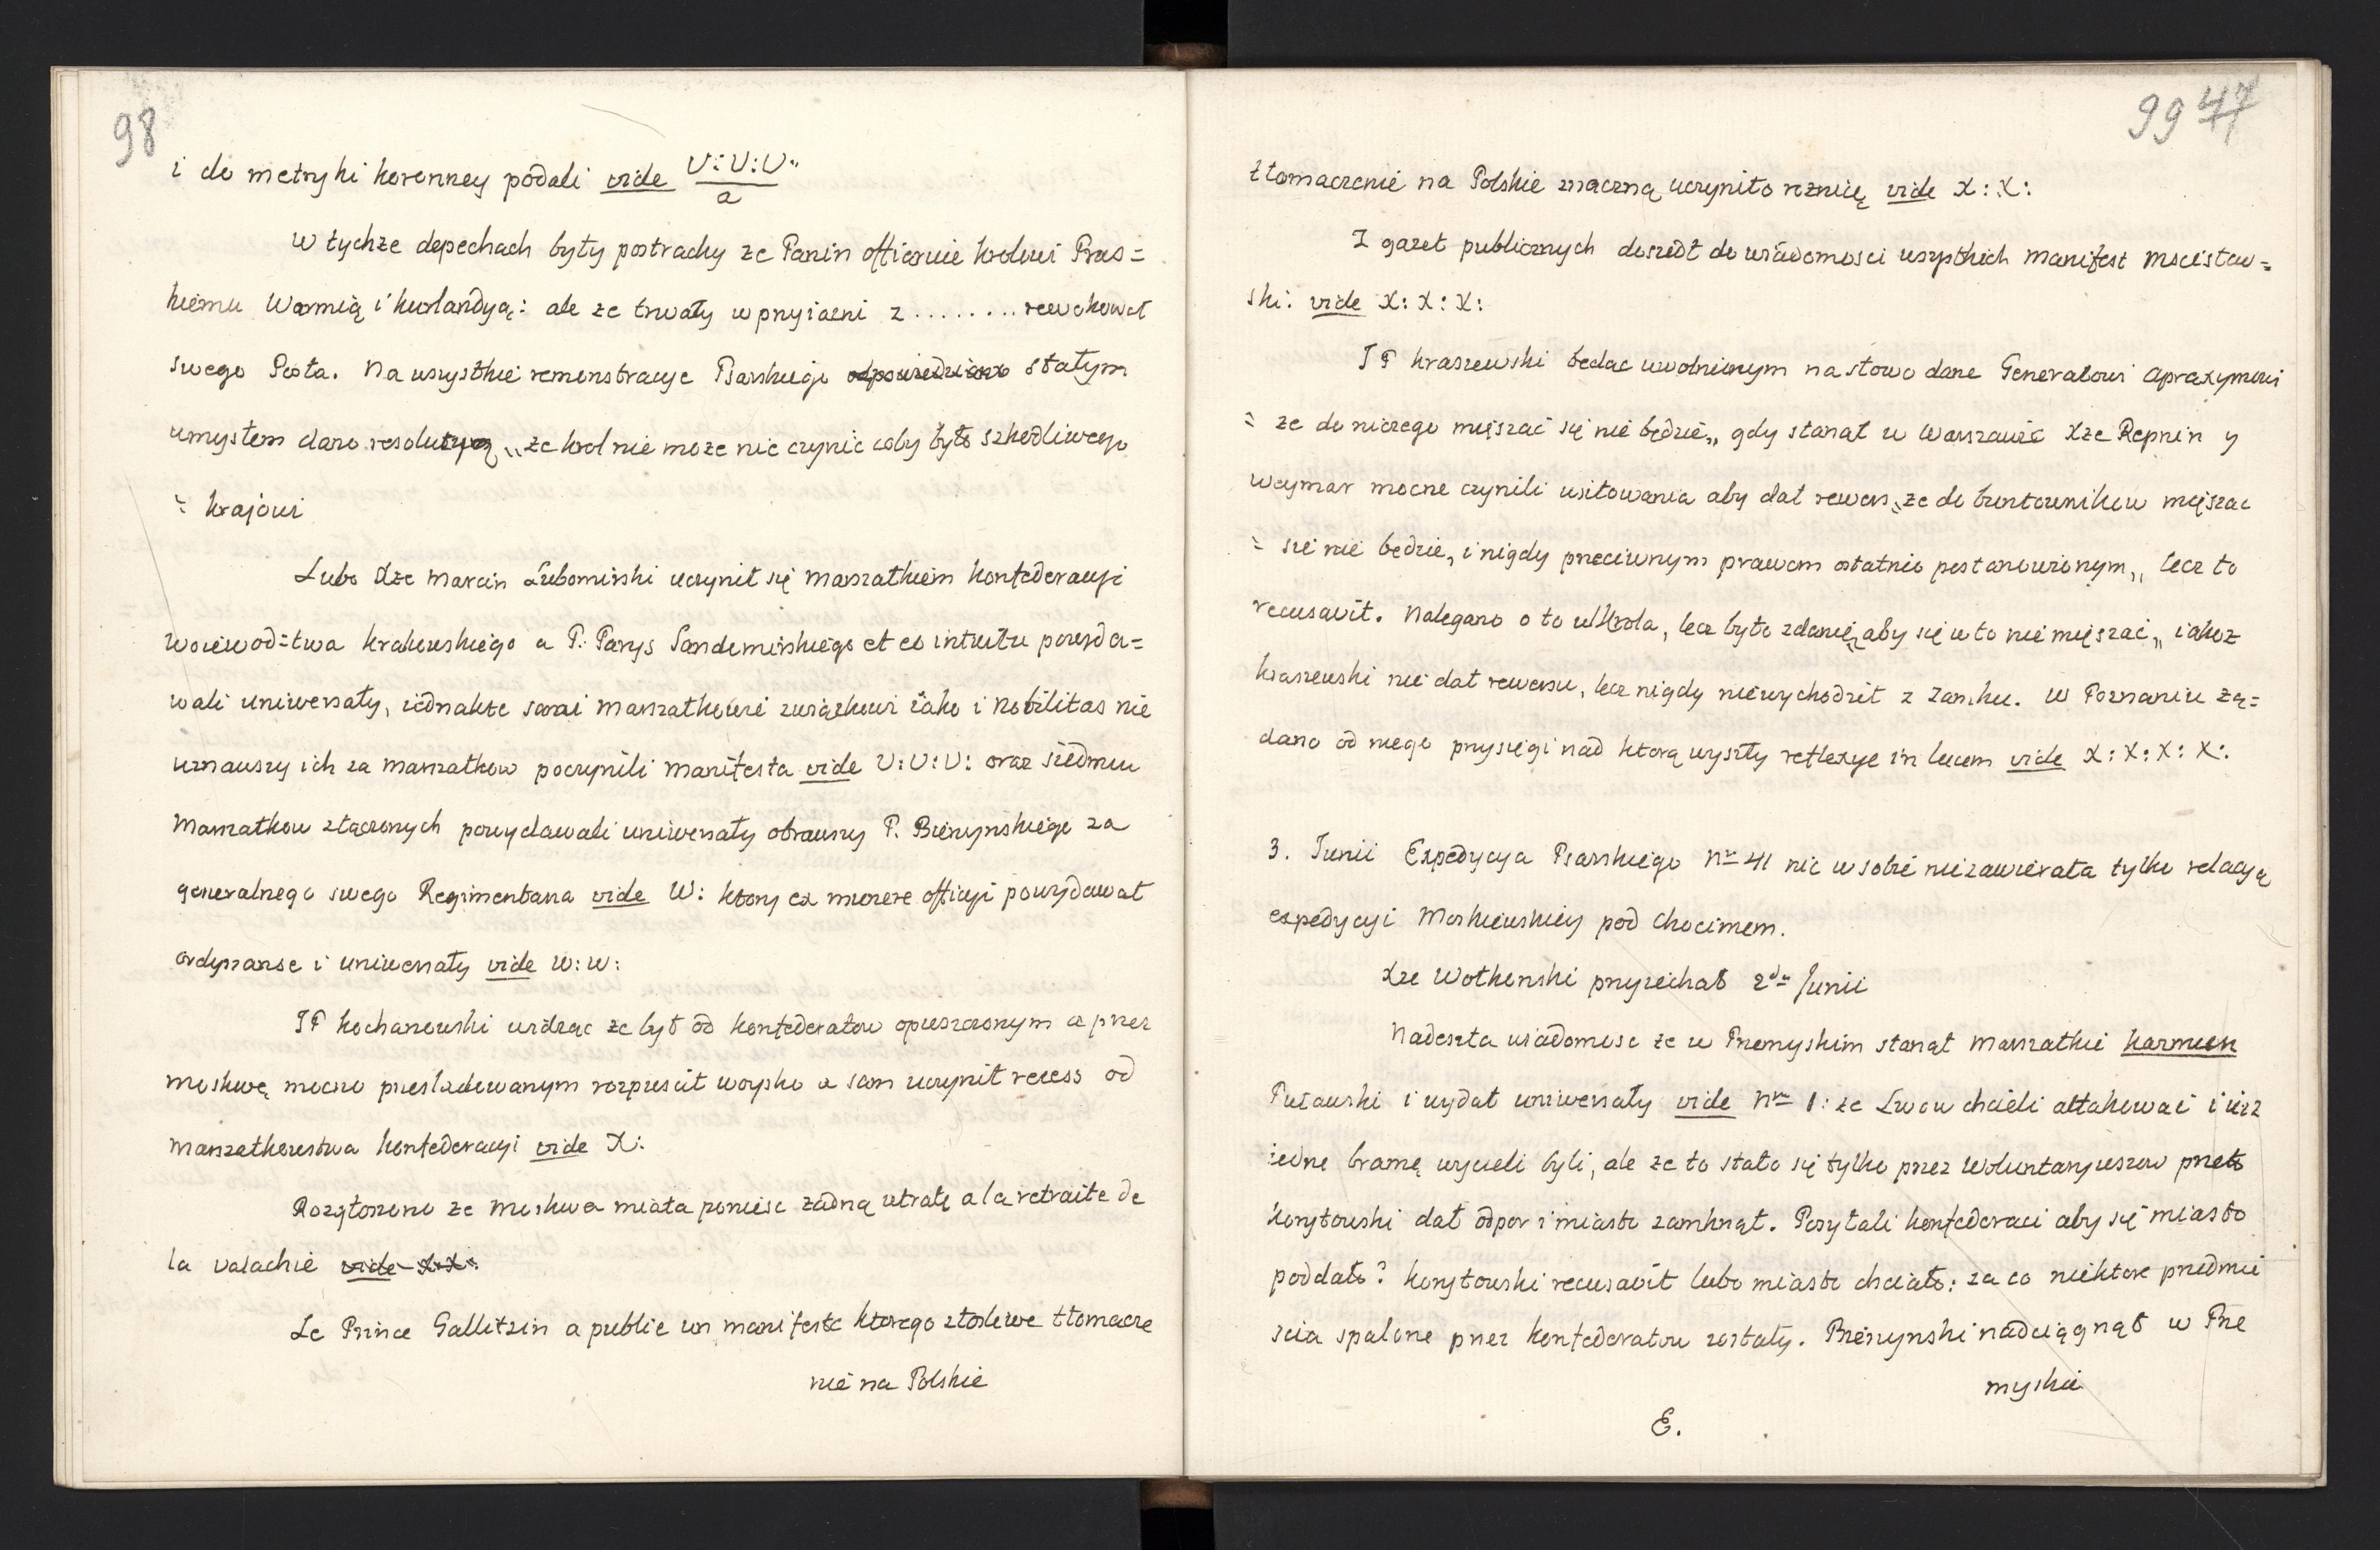 98
i do metryki koronney podali vide U:U:U:
a
W tychże depechach były postrachy że Panin offiaruie krolowi Prus=
kiemu Warmią i Kurlandyą: ale że trwały w przyiaźni z ........ rewokował
swego Posła. Na wszystkie remonstracye Psarskiego odpowiedziano stałym
umysłem dano resolucyą „że krol nie może nic czynić coby było szkodliwego
= krajowi
Lubo Xże Marcin Lubomirski uczynił się Marszałkiem konfederacyi
woiewodztwa krakowskiego a P. Parys Sandomirskiego et eo intuitu powyda=
wali uniwersały, iednakże sami Marszałkowie związkowi iako i Nobilitas nie
uznawszy ich za marszałkow poczynili Manifesta vide U:U:U: oraz siedmiu
Marszałkow złączonych powydawali uniwersały obrawszy P. Bierzynskiego za
generalnego swego Regimentarza vide W: ktory ex munere officyi powydawał
ordynanse i uniwersały vide W:W:
JP Kochanowski widząc że był od konfederatow opuszczonym a przez
Moskwę mocno prześladowanym rozpuscił woysko a sam uczynił recess od
Marszałkowstwa konfederacyi vide X:
Rozgłoszono że Moskwa miała ponieść żadną utratę a la retraite de
la Valachie vide X:X:
Le Prince Gallitzin a publié un manifeste ktorego złosliwe tłomacze
nie na Polskie
99 47
ztłomaczenie na Polskie znaczną uczyniło roznicę vide X:X:
Z gazet publicznych doszedł do wiadomosci wszystkich Manifest Mscisław=
ski: vide X:X:X:
JP Kraszewski bedac uwolnionym na słowo dane Generałowi Apraxymowi
= że do niczego mięszać się nie będzie„ gdy stanał w Warszawie Xże Repnin y
Weymar mocne czynili usiłowania aby dał rewers „że do buntownikow mięszac
= się nie będzie, i nigdy przeciwnym prawom ostatnio postanowionym„ lecz to
recusavit. Nalegano o to u Krola, lecz było zdanie „aby się w to nie mięszać„ iakoż
Kraszewski nie dał rewersu, lecz nigdy niewychodził z zamku. W Poznaniu żą=
dano od niego przysięgi nad ktorą wyszły reflexye in lucem vide X:X:X:X:
3. Junii Expedycya Psarskiego Nro 41 nic w sobie niezawierała tylko relacyą
expedycyi Moskiewskiey pod Chocimem.
Xże Wołkonski przyiechał 2da Junii
Nadeszła wiadomosc że w Przemyskim stanął Marszałkie
Pułauski i wydał uniwersały vide Nro 1: że Lwow chcieli attakować i iuż
iedne bramę wycieli byli, ale że to stało się tylko przez Woluntaryuszow przeto
Korytowski dał odpor i miasto zamknął. Posytali konfederaci aby się miasto
poddało? Korytowski recusavit lubo miasto chciało: za co niektore przedmie
scia spalone przez konfederatow zostały. Bierzynski nadciągnął w Prze
myskie
E.